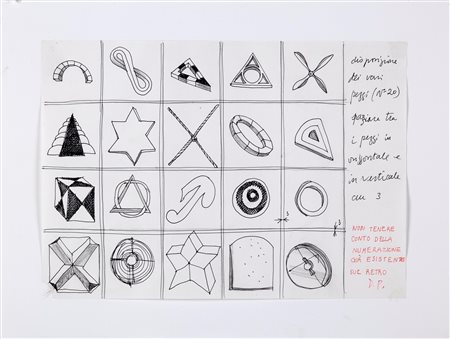 disposizione
dei vari
pezzi (N° 20)
spaziare tra
i pezzi in
orizzontale e
in verticale
cm 3
3
3
NON TENERE
CONTO DELLA
NUMERAZIONE
GIÀ ESISTENTE
SUL RETRO
D.P.